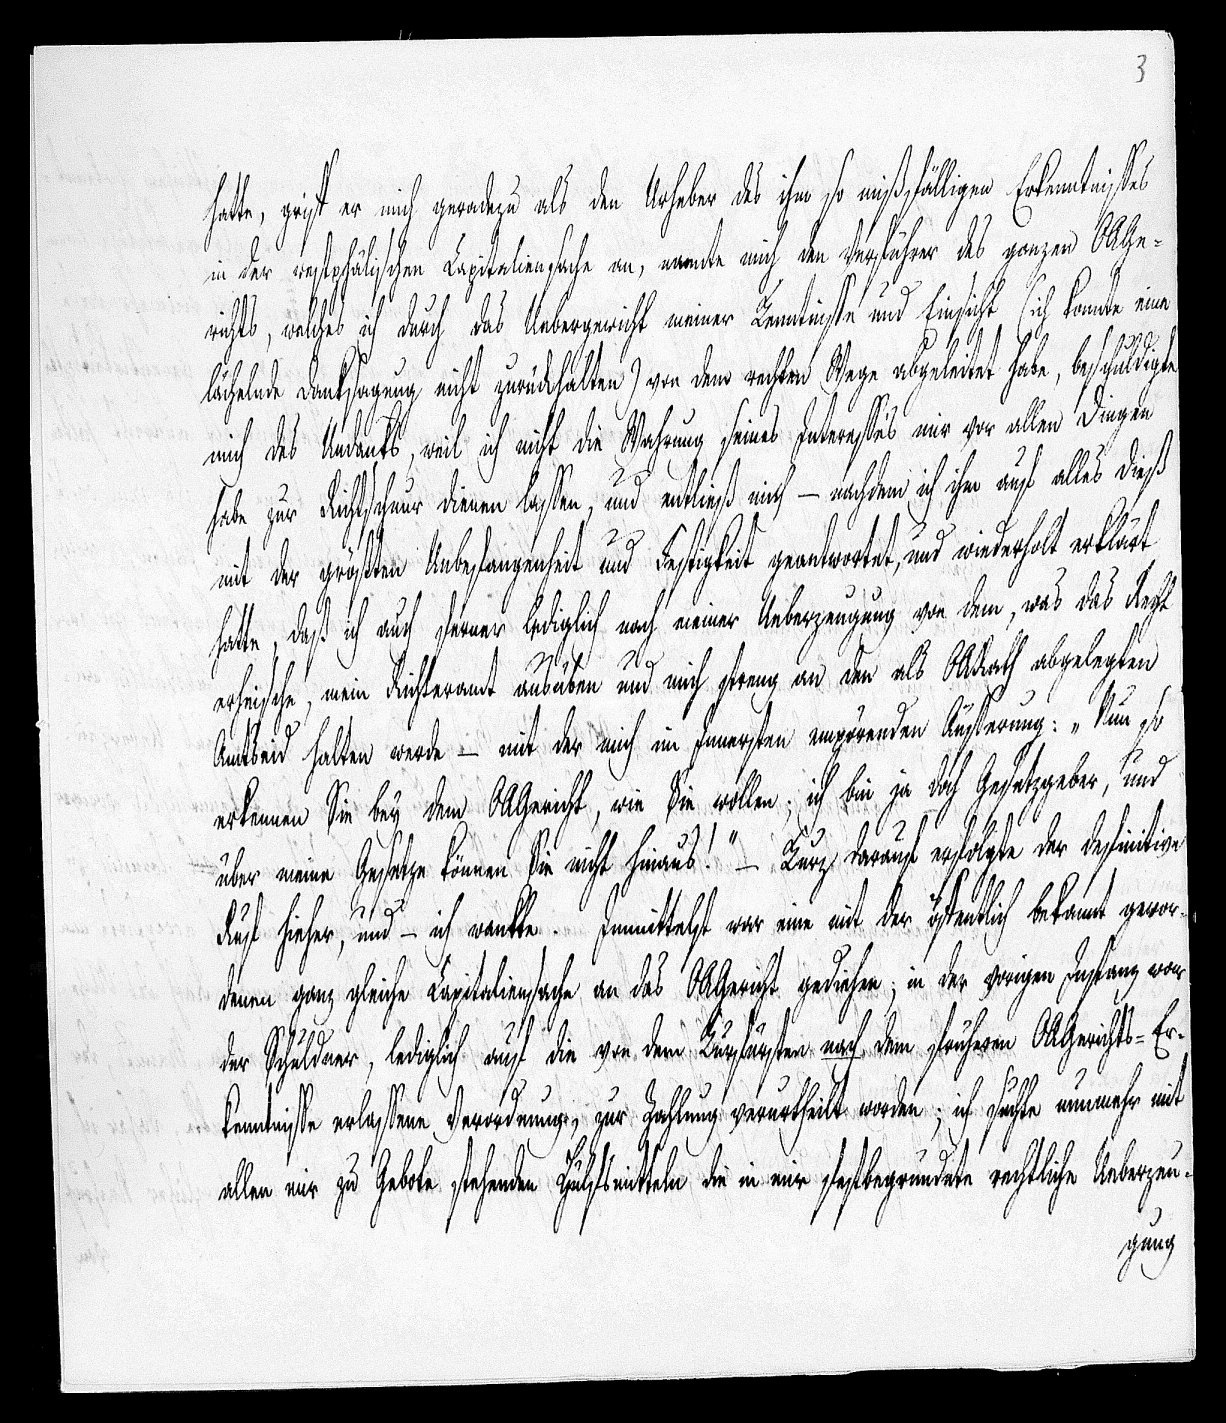 3
hatte, griff er mich geradezu als den Urheber des ihm so mißfälligen Erkenntnisses
in der westphälischen Capitaliensache an, nannte mich den Verführer des ganzen OAGe-
richts, welches ich durch das Uebergewicht meiner Kenntnisse und Einsicht (ich konnte eine
lächelnde Danksagung nicht zurückhalten) von dem rechten Wege abgeleitet habe, beschuldigte
mich des Undanks, weil ich nicht die Wahrung seines Interesse's mir vor allen Dingen
habe zur Richtschnur dienen lassen, und entließ mich – nachdem ich ihm auf alles dieß
mit der größten Unbefangenheit und Festigkeit geantwortet, und wiederholt erklärt
hatte, daß ich auch ferner lediglich nach meiner Ueberzeugung von dem, was das Recht
erheische, mein Richteramt ausüben und mich streng an den als OARath abgelegten
Amtseid halten werde – mit der mich im Innersten empörenden Äusserung: „Nun so
erkennen Sie bey dem OAGericht, wie Sie wollen; ich bin ja doch Gesetzgeber, und
über meine Gesetze können Sie nicht hinaus!" – Kurz darauf erfolgte der definitive
Ruf hieher, und – ich wankte. Inmittelst war eine mit der öffentlich bekannt gewor-
denen ganz gleiche Capitaliensache an das OAGericht gediehen; in der vorigen Instanz war
der Schuldner, lediglich auf die von dem Kurfürsten nach dem früheren OAGerichts-Er-
kenntnisse erlassene Verordnung, zur Zahlung verurtheilt worden; ich suchte nunmehr mit
allen mir zu Gebote stehenden Hülfsmitteln die in mir festbegründete rechtliche Ueberzeu-
gung